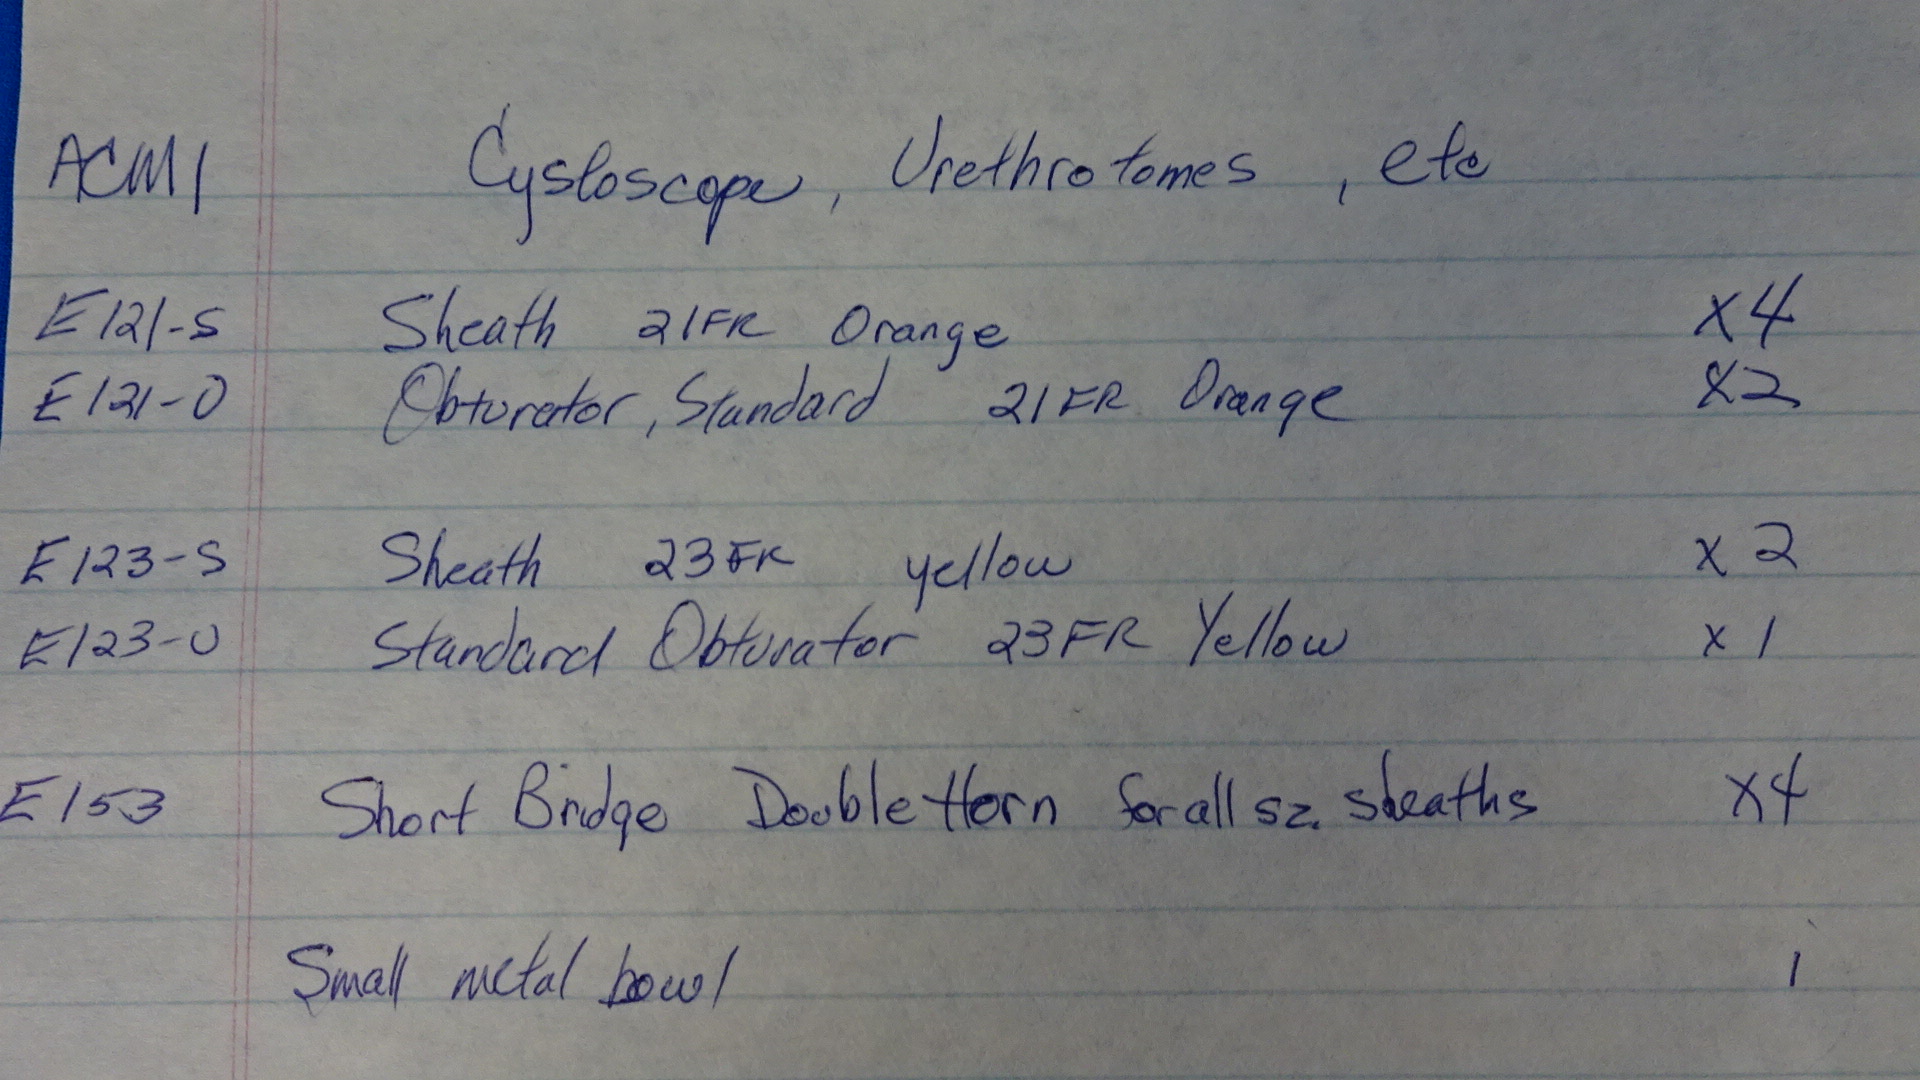 ACMI Cystoscope, Urethrotomes, etc
E121-S Sheath 21FR Orange x4
E121-O Obturator, Standard 21FR Orange x2
E123-S Sheath 23FR yellow x2
E123-O Standard Obturator 23FR Yellow x1
E153 Short Bridge Double Horn for all sz. sheaths x4
Small metal bowl 1